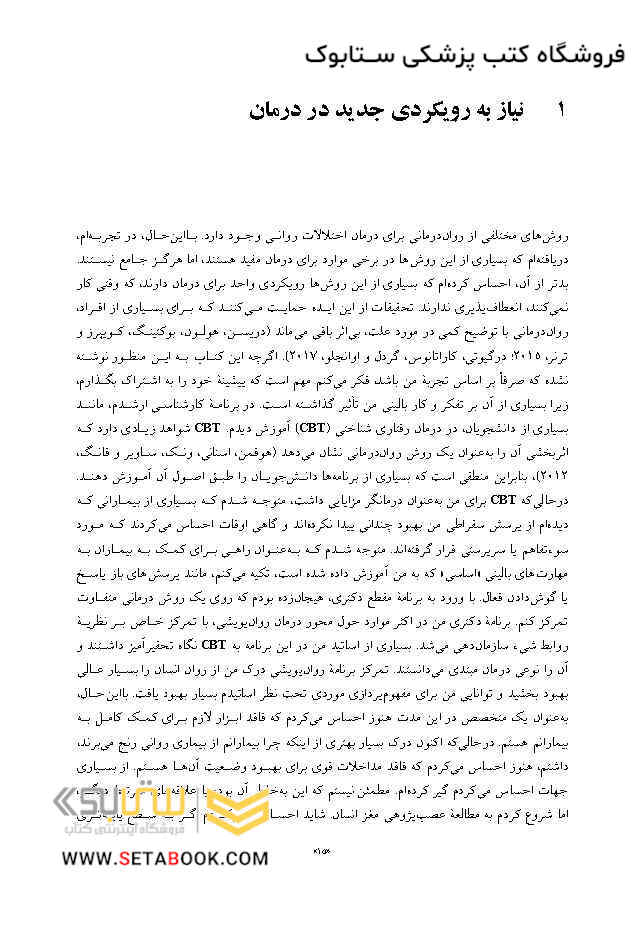 فروشگاه کتب پزشکی ستابوک
۱ نیاز به رویکردی جدید در درمان
روش‌های مختلفی از روان‌درمانی برای درمان اختلالات روانی وجود دارد. بااین‌حال، در تجربه‌ام،
دریافته‌ام که بسیاری از این روش‌ها در برخی موارد برای درمان مفید هستند، اما هرگز جامع نیستند.
بدتر از آن، احساس کرده‌ام که بسیاری از این روش‌ها رویکردی واحد برای درمان دارند، که وقتی کار
نمی‌کنند، انعطاف‌پذیری ندارند. تحقیقات از این ایده حمایت می‌کنند که برای بسیاری از افراد،
روان‌درمانی با توضیح کمی در مورد علت، بی‌اثر باقی می‌ماند (دریسن، هولون، بوکتینگ، کویپرز و
ترنر، ۲۰۱۵؛ درگیوتی، کاراتانوس، گردل و اوانجلو، ۲۰۱۷). اگرچه این کتاب به این منظور نوشته
نشده که صرفاً بر اساس تجربهٔ من باشد، فکر می‌کنم مهم است که پیشینهٔ خود را به اشتراک بگذارم،
زیرا بسیاری از آن بر تفکر و کار بالینی من تأثیر گذاشته است. در برنامهٔ کارشناسی ارشدم، مانند
بسیاری از دانشجویان، در درمان رفتاری شناختی (CBT) آموزش دیدم. CBT شواهد زیادی دارد که
اثربخشی آن را به‌عنوان یک روش روان‌درمانی نشان می‌دهد (هوفمن، استانی، ونک، ساویر و فانگ،
۲۰۱۲)، بنابراین منطقی است که بسیاری از برنامه‌ها دانش‌جویان را طبق اصول آن آموزش دهند.
درحالی‌که CBT برای من به‌عنوان درمانگر مزایایی داشت، متوجه شدم که بسیاری از بیمارانی که
دیده‌ام از پرسش سقراطی من بهبود چندانی پیدا نکرده‌اند و گاهی اوقات احساس می‌کردند که مورد
سوءتفاهم یا سرپرستی قرار گرفته‌اند. متوجه شدم که به‌عنوان راهی برای کمک به بیماران به
مهارت‌های بالینی «اساسی» که به من آموزش داده شده است، تکیه می‌کنم، مانند پرسش‌های باز پاسخ
یا گوش‌دادن فعال. با ورود به برنامهٔ مقطع دکتری، هیجان‌زده بودم که روی یک روش درمانی متفاوت
تمرکز کنم. برنامهٔ دکتری من در اکثر موارد حول محور درمان روان‌پویشی، با تمرکز خاص بر نظریهٔ
روابط شیء سازمان‌دهی می‌شد. بسیاری از اساتید من در این برنامه به CBT نگاه تحقیرآمیز داشتند و
آن را نوعی درمان مبتدی می‌دانستند. تمرکز برنامهٔ روان‌پویشی درک من از روان انسان را بسیار عالی
بهبود بخشید و توانایی من برای مفهوم‌پردازی موردی تحت نظر اساتیدم بسیار بهبود یافت. بااین‌حال،
به‌عنوان یک متخصص در این مدت هنوز احساس می‌کردم که فاقد ابزار لازم برای کمک کامل به
بیمارانم هستم. درحالی‌که اکنون درک بسیار بهتری از اینکه چرا بیمارانم از بیماری روانی رنج می‌برند،
داشتم، هنوز احساس می‌کردم که فاقد مداخلات قوی برای بهبود وضعیت آن‌ها هستم. از بسیاری
جهات احساس می‌کردم گیر کرده‌ام. مطمئن نیستم که این به‌خاطر آن بود یا علاقه‌های
اما شروع کردم به مطالعهٔ عصب‌پژوهی مغز انسان. شاید احساس
ستابوک
فروشگاه اینترنتی کتاب
WWW.SETABOOK.COM
«۱۵»